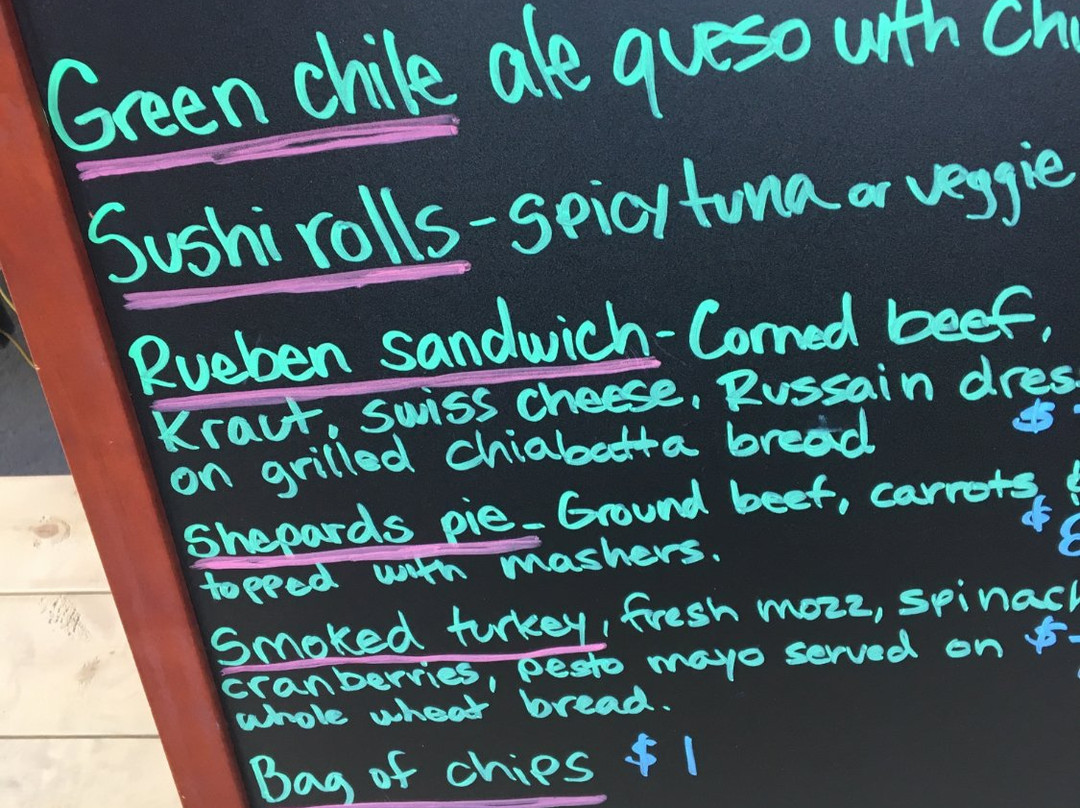 Green chile ale queso with Chi
Sushi rolls - spicy tuna or veggie
Rueben sandwich - Corned beef,
Kraut, swiss cheese, Russain dres
on grilled chiabatta bread $
Shepards pie - Ground beef, carrots
topped with mashers. $
Smoked turkey, fresh mozz, spinach
cranberries, pesto mayo served on $
whole wheat bread.
Bag of chips $1